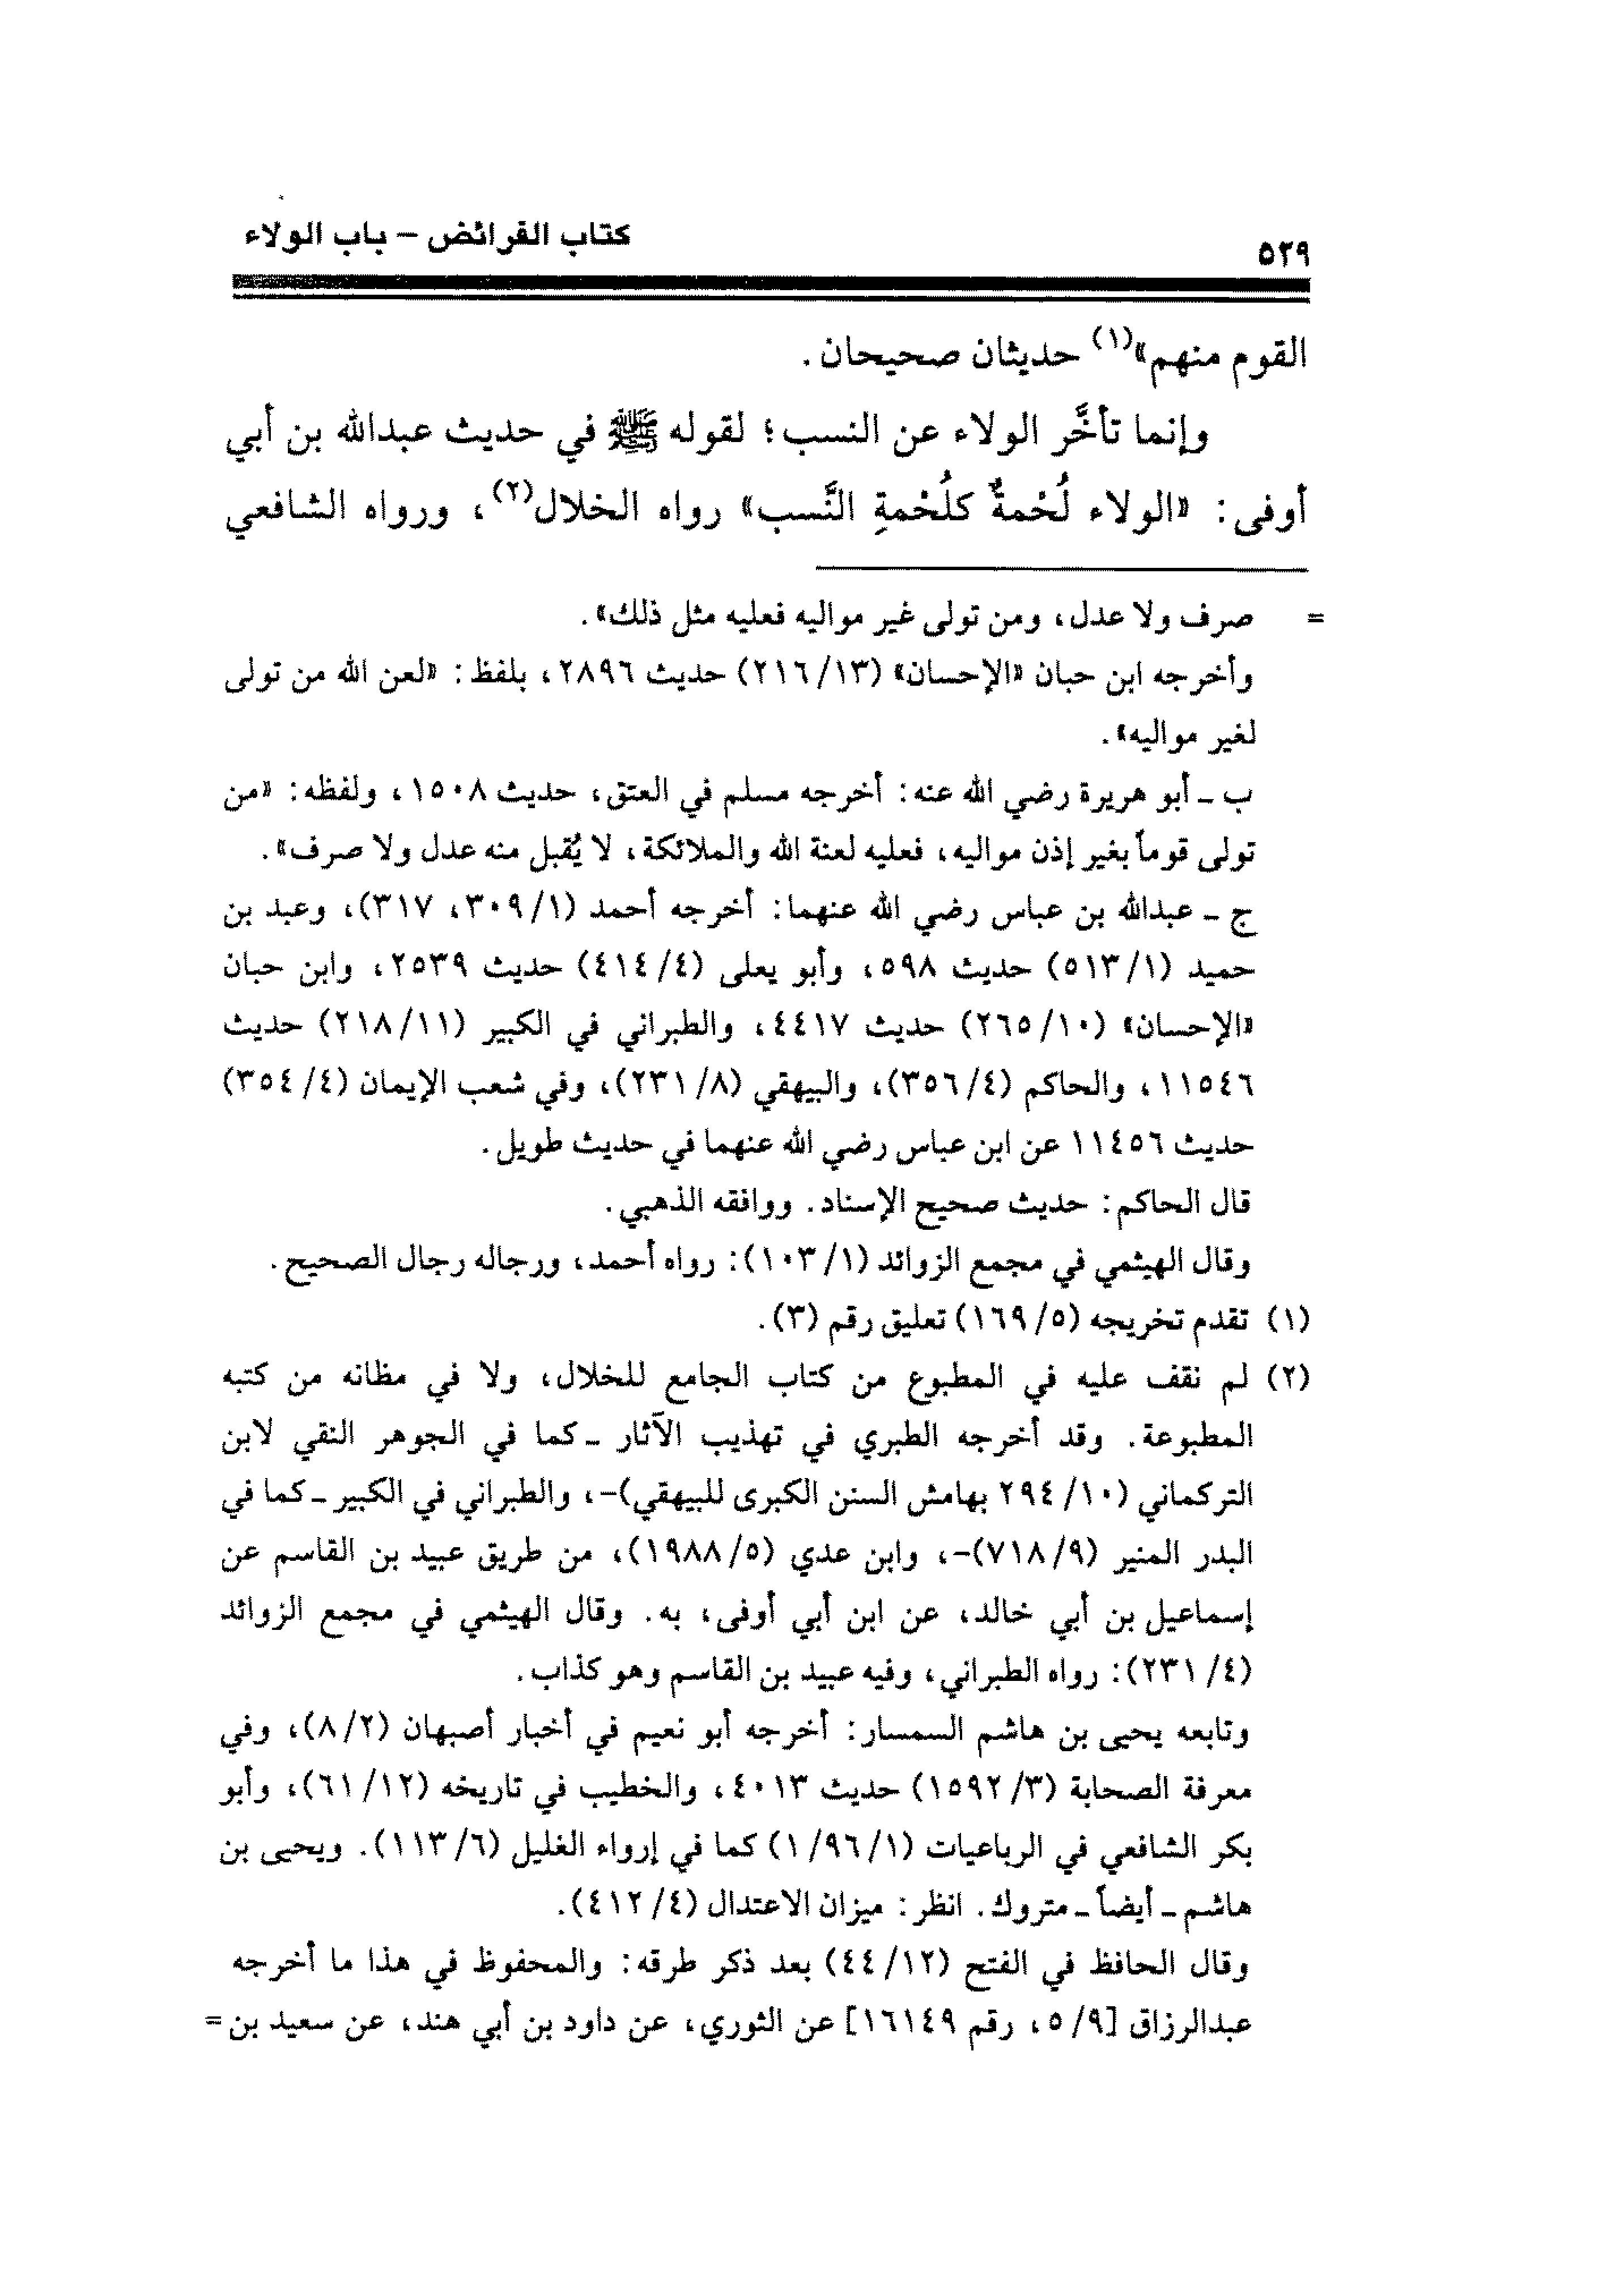 كتاب الفرائض – باب الولاء
٥٢٩
القوم منهم»(١) حديثان صحيحان.
وإنما تأخَّر الولاء عن النسب؛ لقوله ﷺ في حديث عبدالله بن أبي
أوفى: «الولاء لُحْمةٌ كلُحْمةِ النَّسب» رواه الخلال(٢)، ورواه الشافعي
= صرف ولا عدل، ومن تولى غير مواليه فعليه مثل ذلك».
وأخرجه ابن حبان «الإحسان» (٢١٦/١٣) حديث ٢٨٩٦، بلفظ: «لعن الله من تولى
لغير مواليه».
ب ـ أبو هريرة رضي الله عنه: أخرجه مسلم في العتق، حديث ١٥٠٨، ولفظه: «من
تولى قوماً بغير إذن مواليه، فعليه لعنة الله والملائكة، لا يُقبل منه عدل ولا صرف».
ج ـ عبدالله بن عباس رضي الله عنهما: أخرجه أحمد (٣٠٩/١، ٣١٧)، وعبد بن
حميد (٥١٣/١) حديث ٥٩٨، وأبو يعلى (٤١٤/٤) حديث ٢٥٣٩، وابن حبان
«الإحسان» (٢٦٥/١٠) حديث ٤٤١٧، والطبراني في الكبير (٢١٨/١١) حديث
١١٥٤٦، والحاكم (٣٥٦/٤)، والبيهقي (٢٣١/٨)، وفي شعب الإيمان (٣٥٤/٤)
حديث ١١٤٥٦ عن ابن عباس رضي الله عنهما في حديث طويل.
قال الحاكم: حديث صحيح الإسناد. ووافقه الذهبي.
وقال الهيثمي في مجمع الزوائد (١٠٣/١): رواه أحمد، ورجاله رجال الصحيح.
(١) تقدم تخريجه (١٦٩/٥) تعليق رقم (٣).
(٢) لم نقف عليه في المطبوع من كتاب الجامع للخلال، ولا في مظانه من كتبه
المطبوعة. وقد أخرجه الطبري في تهذيب الآثار ـ كما في الجوهر النقي لابن
التركماني (٢٩٤/١٠ بهامش السنن الكبرى للبيهقي)–، والطبراني في الكبير ـ كما في
البدر المنير (٧١٨/٩)–، وابن عدي (١٩٨٨/٥)، من طريق عبيد بن القاسم عن
إسماعيل بن أبي خالد، عن ابن أبي أوفى، به. وقال الهيثمي في مجمع الزوائد
(٢٣١/٤): رواه الطبراني، وفيه عبيد بن القاسم وهو كذاب.
وتابعه يحيى بن هاشم السمسار: أخرجه أبو نعيم في أخبار أصبهان (٨/٢)، وفي
معرفة الصحابة (١٥٩٢/٣) حديث ٤٠١٣، والخطيب في تاريخه (٦١/١٢)، وأبو
بكر الشافعي في الرباعيات (١/٩٦/١) كما في إرواء الغليل (١١٣/٦). ويحيى بن
هاشم ـ أيضاً ـ متروك. انظر: ميزان الاعتدال (٤١٢/٤).
وقال الحافظ في الفتح (٤٤/١٢) بعد ذكر طرقه: والمحفوظ في هذا ما أخرجه
عبدالرزاق [٥/٩، رقم ١٦١٤٩] عن الثوري، عن داود بن أبي هند، عن سعيد بن =